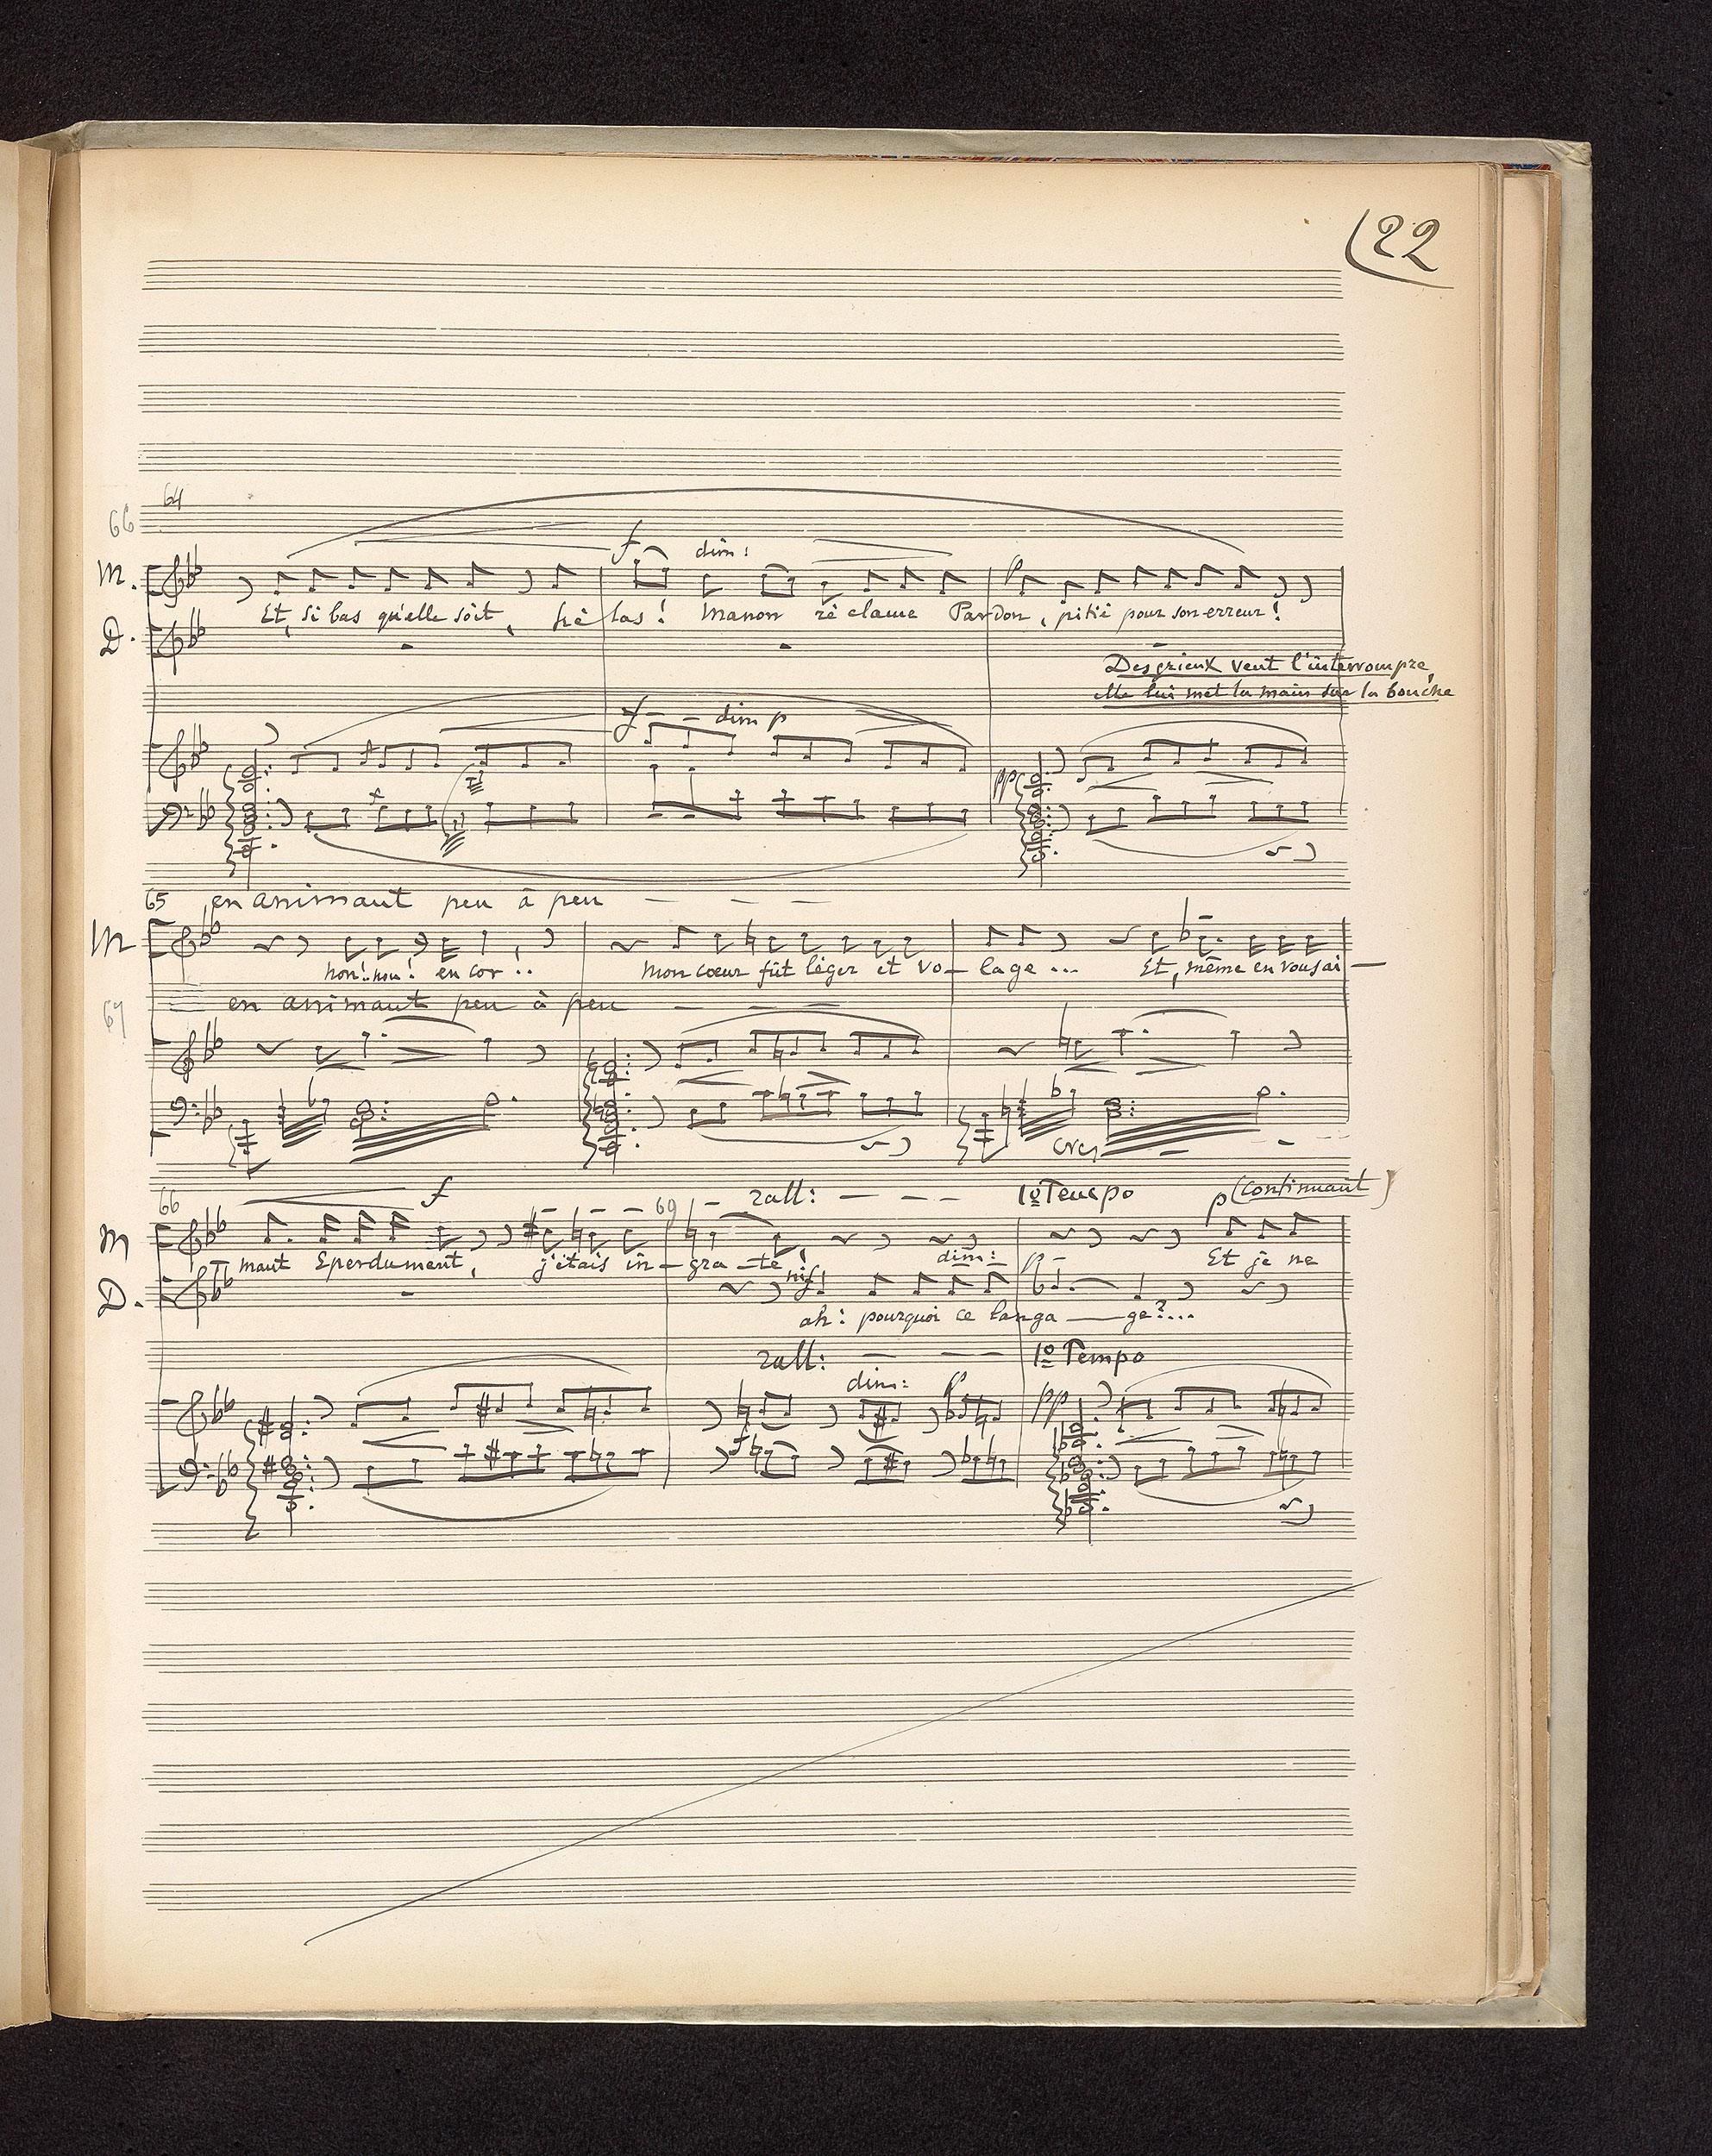 22
64
66
f
dim:
M.
p
Et, si bas qu'elle soit, hé las! Manon ré clame Pardon, pitié pour son erreur!
D.
Desgrieux veut l'interrompre,
elle lui met la main sur la bouche
f - - dim p
pp
65 en animant peu à peu - - -
M
non! non! encor!.. mon cœur fût léger et vo- lage... Et, même en vous ai-
67
en animant peu à peu - - -
cres - -
66 f 69 - rall: - - - 1º Tempo p (continuant)
M
mant Eperdument, j'étais in-gra-te! Et je ne
dim: p
D.
mf
ah! pourquoi ce langa-ge?...
rall: - - - 1º Tempo
dim: p pp
f